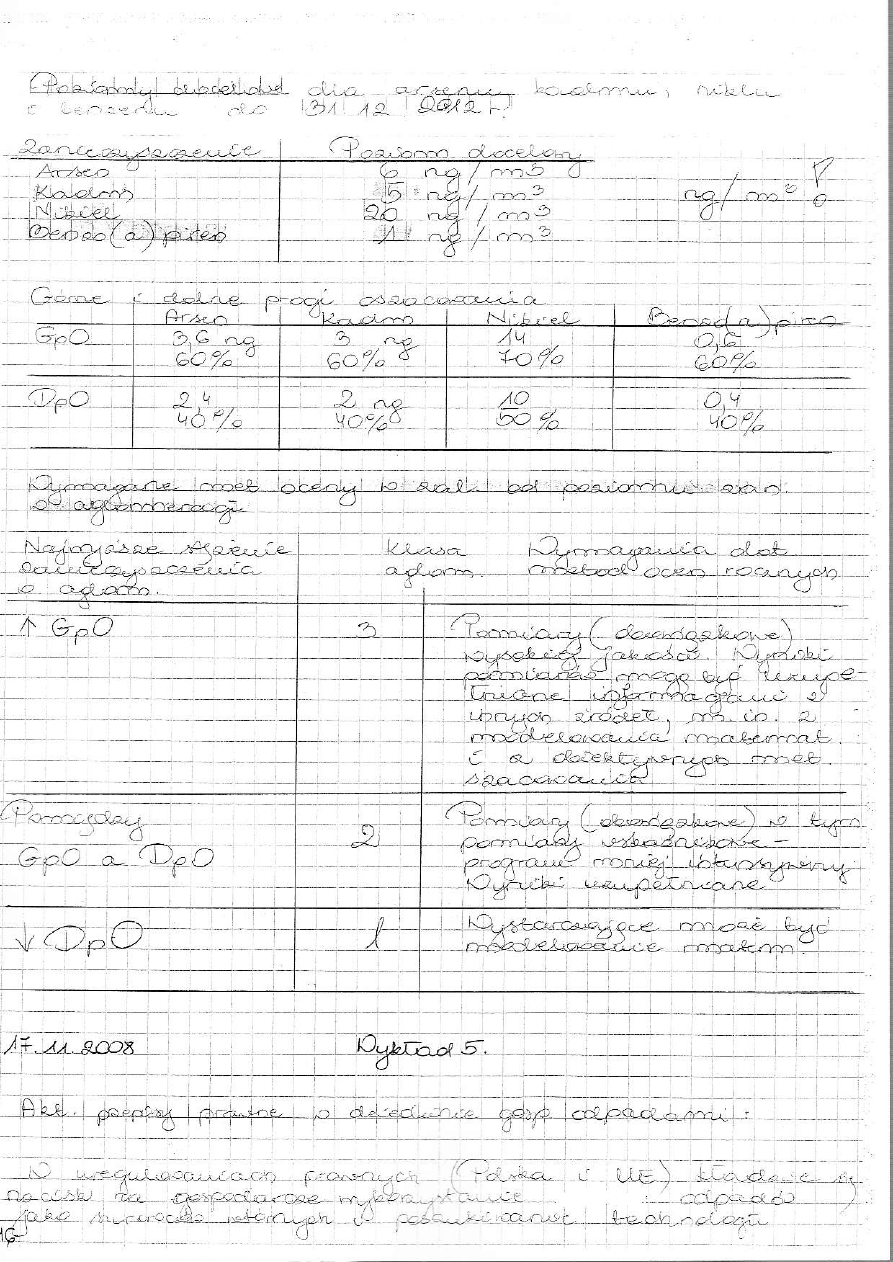 Poziomy docelowe dla arsenu, kadmu, niklu
i benzenu do 31 12 2012 r.!
Zanieczyszczenie Poziom docelowy
Arsen 6 ng/m3
Kadm 5 ng/m3 ng/m3 !
Nikiel 20 ng/m3
Benzo(a)piren 1 ng/m3
Górne i dolne progi oszacowania
Arsen Kadm Nikiel Benzo(a)piren
GpO 3,6 ng 3 ng 14 0,6
60% 60% 70% 60%
DpO 2,4 2 ng 10 0,4
40% 40% 50% 40%
Wymagane met oceny w zal. od poziomu zan.
w aglomeracji
Najwyższe stężenie klasa Wymagania dot
zanieczyszczenia aglom. metod ocen rocznych
w aglom.
↑ GpO 3 Pomiary (obowiązkowe)
wysokiej jakości. Wyniki
pomiarów mogą być uzupe-
łniane informacjami z
innych źródeł, m. in. z
modelowania matemat.
i z obiektywnych met.
szacowania
Pomiędzy 2 Pomiary (obowiązkowe) w tym
GpO a DpO pomiary wskaźnikowe -
program mniej intensywny
Wyniki uzupełniane
↓ DpO 1 Wystarczające może być
modelowanie matem.
17.11.2008 Wykład 5.
Akt. przepisy prawne w dziedzinie gosp odpadami:
W uregulowaniach prawnych (Polska i UE) kładzie się
nacisk na gospodarcze wykorzystanie odpadów
jako surowców wtórnych i poszukiwanie technologii
16